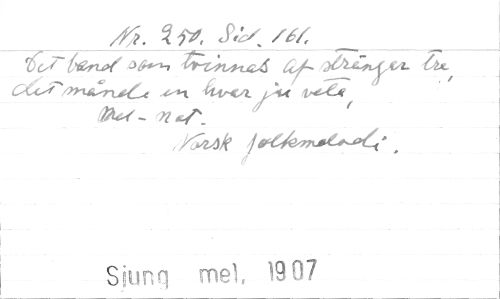 Nr. 250. Sid. 161.
Det band som tvinnas af strängar tre,
det månde en hvar ju veta,
Mel-not.
Norsk folkmelodi.
Sjung mel. 1907